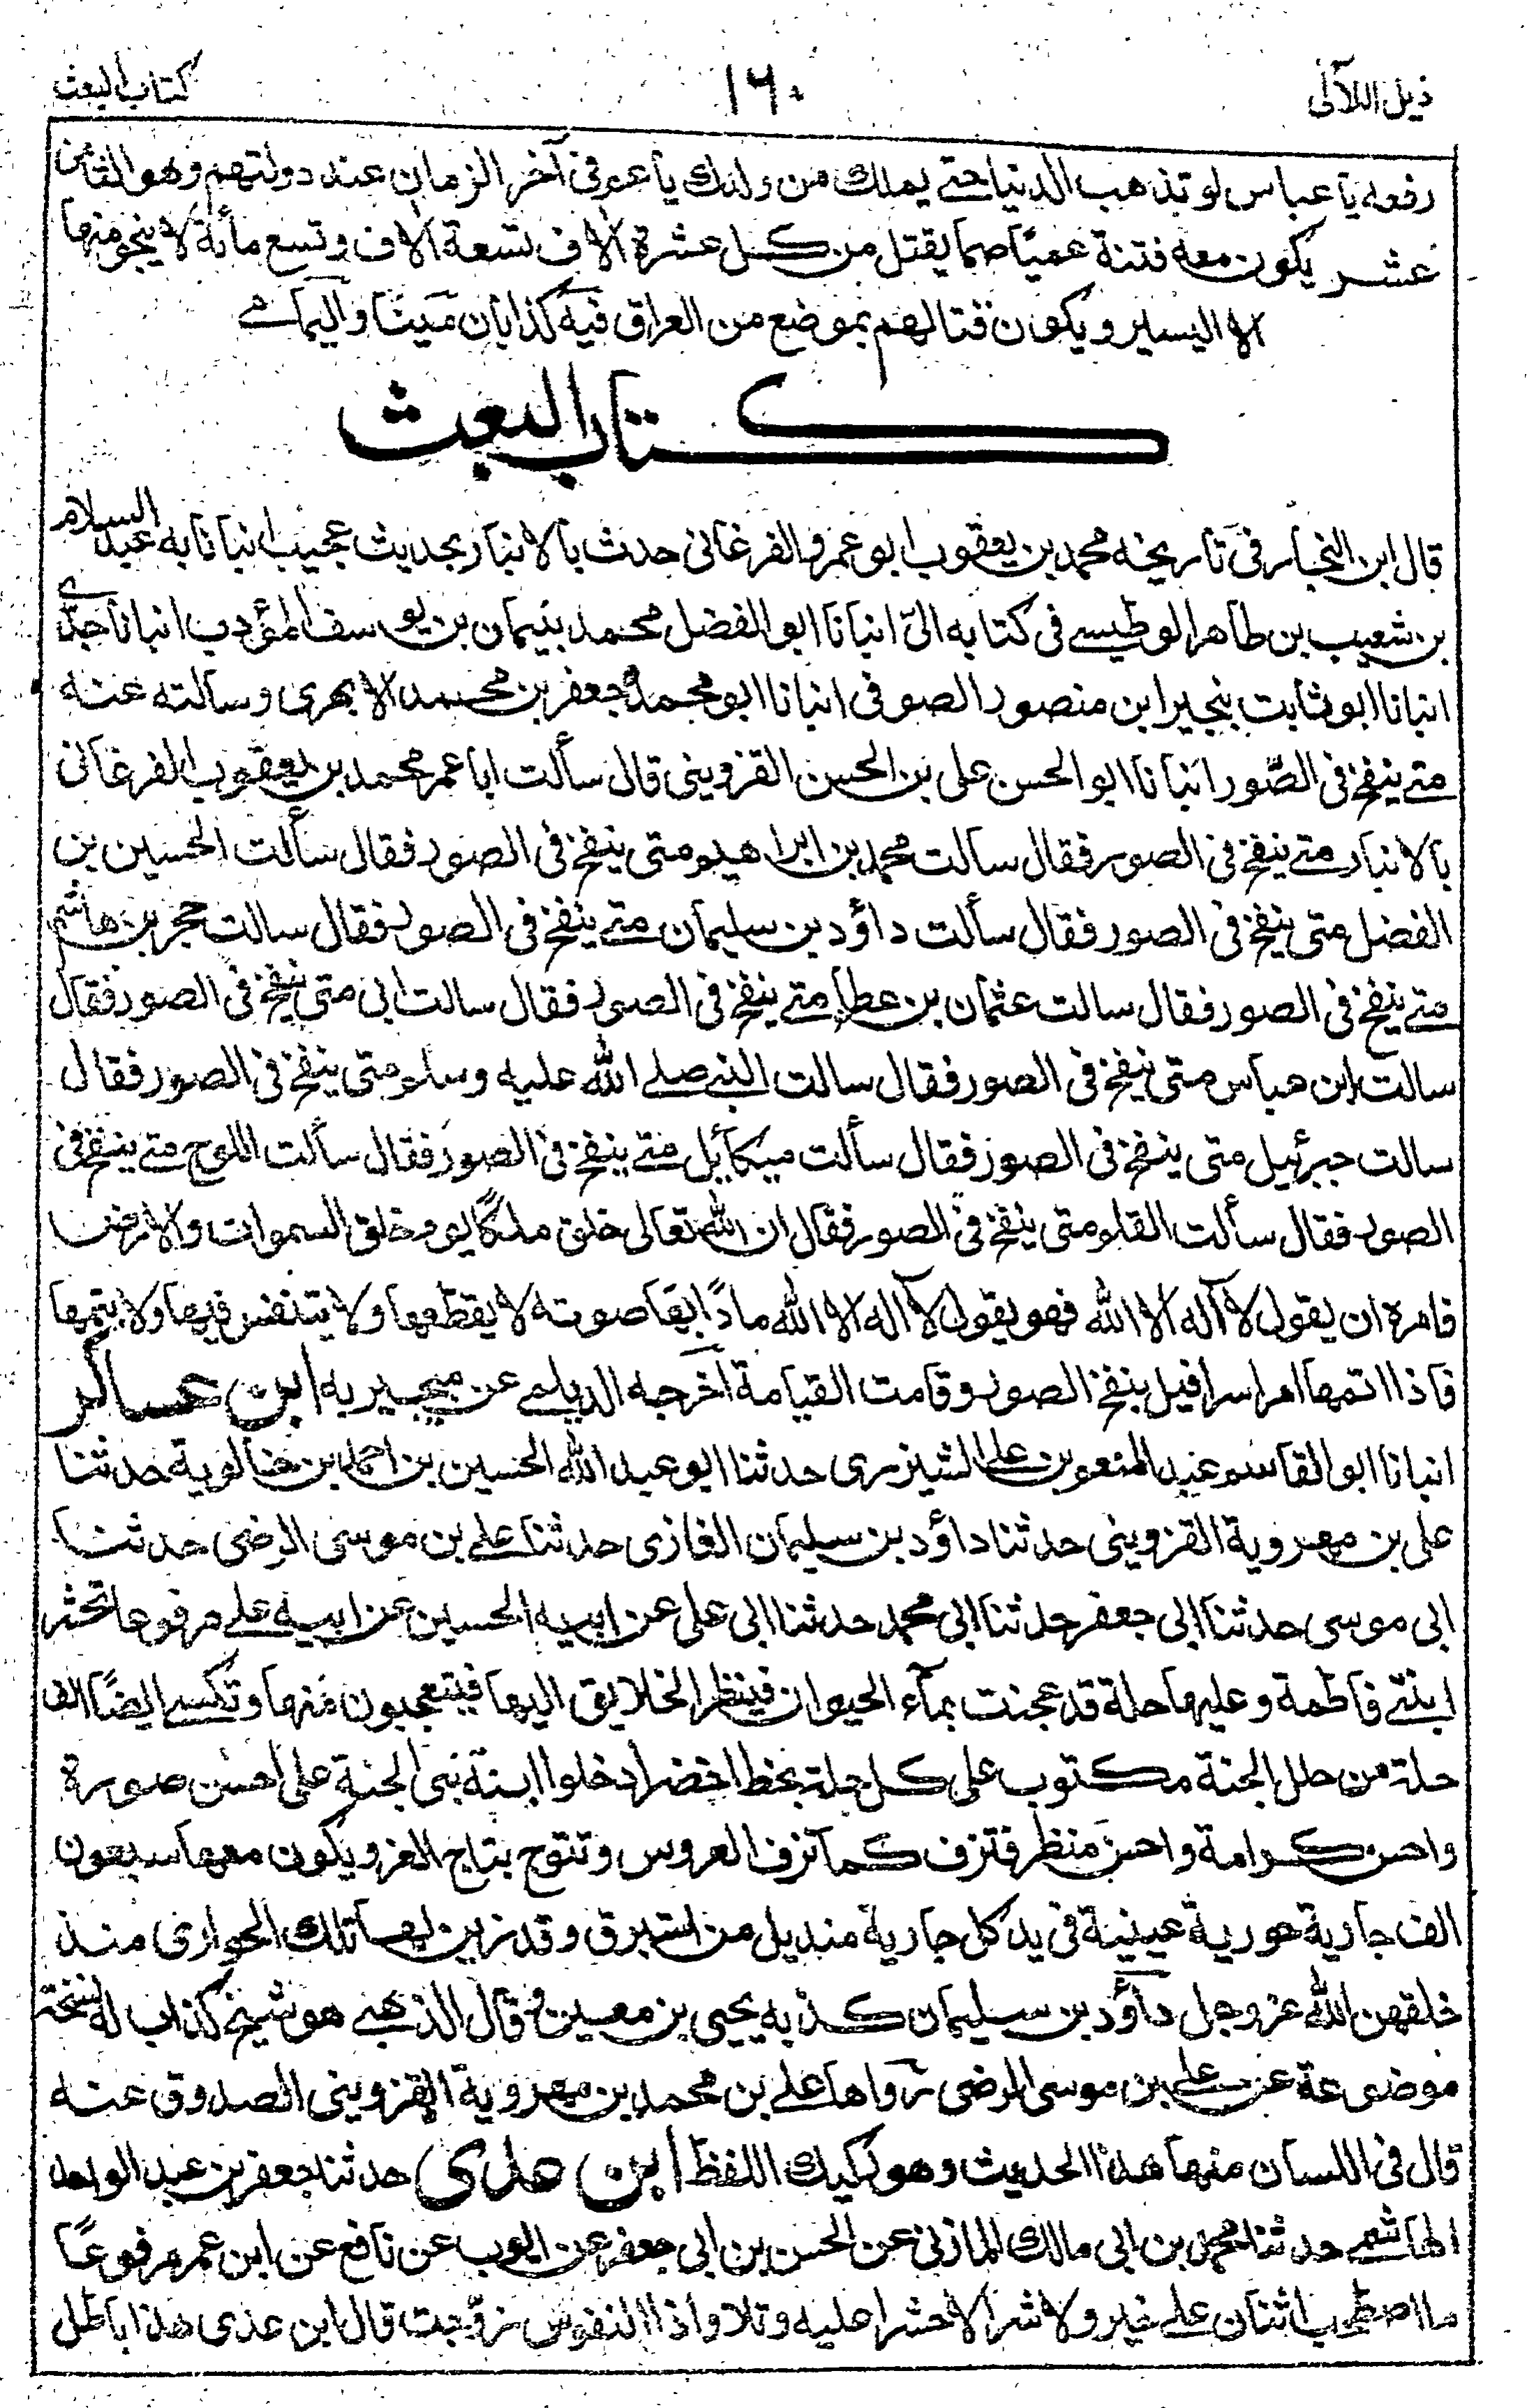 ذيل اللآلى
١٦٠
كتاب البعث
رفعه يا عباس لو تذهب الدنيا حتے يملك من ولدك يا عم فى آخر الزمان عند دولتهم وهو الثامن
عشر يكون معه فتنة عميًا صما يقتل من كل عشرة آلاف تسعة آلاف وتسع مائة لا ينجو منها
الا اليسير ويكون قتالهم بموضع من العراق فيه كذابان مينا واليمامے
كتاب البعث
قال ابن النجار فى تاريخه محمد بن يعقوب ابو عمرو الفرغانى حدث بالانبار بحديث عجيب انبانا به عبد السلام
بن شعيب بن طاهر الوطيسے فى كتابه الىّ انبانا ابو الفضل محمد بنيمان بن يوسف المؤدب انبانا جدّى
انبانا ابو ثابت بنجير ابن منصور الصوفى انبانا ابو محمد جعفر بن محمد الابهرى وسالته عنه
متے ينفخ فى الصّور انبانا ابو الحسن على بن الحسن القزوينى قال سألت ابا عمر محمد بن يعقوب الفرغانى
بالانبار متے ينفخ فى الصور فقال سالت محمد بن ابراهيم متى ينفخ فى الصور فقال سألت الحسين بن
الفضل متى ينفخ فى الصور فقال سألت داؤد بن سليمان متے ينفخ فى الصور فقال سالت حجر بن هاشم
متے ينفخ فى الصور فقال سالت عثمان بن عطا متے ينفخ فى الصور فقال سالت ابى متى ينفخ فى الصور فقال
سالت ابن عباس متى ينفخ فى الصور فقال سالت النبے صلے الله عليه وسلم متى ينفخ فى الصور فقال
سالت جبرئيل متى ينفخ فى الصور فقال سألت ميكائيل متے ينفخ فى الصور فقال سألت اللوح متے ينفخ فى
الصور فقال سألت القلم متى ينفخ فى الصور فقال ان الله تعالى خلق ملكًا يوم خلق السموات والارض
فامره ان يقول لا آله الا الله فهو يقول لا آله الا الله مادًا بها صوته لا يقطعها ولا يتنفس فيها ولا يتمها
فاذا اتمها امر اسرافيل بنفخ الصور وقامت القيامة اخرجه الديلمے عن بنجير به ابن عساكر
انبانا ابو القاسم عبد المنعم بن على الشيزرى حدثنا ابو عبد الله الحسين بن احمد بن خالوية حدثنا
على بن مهروية القزوينى حدثنا داؤد بن سليمان الغازى حدثنا علے بن موسى الرضى حدثنا
ابى موسى حدثنا ابى جعفر حدثنا ابى محمد حدثنا ابى على عن ابيه الحسين عن ابيه علے مرفوعا تحشر
ابنتے فاطمة وعليها حلة قد عجنت بمآء الحيوان فينظر الخلايق اليها فيتعجبون منها وتكسے ايضًا الف
حلة من حلل الجنة مكتوب على كل حلة بخط اخضر ادخلوا ابنة نبى الجنة على احسن صورة
واحسن كرامة واحسن منظر فتزف كما تزف العروس وتتوج بتاج العز ويكون معها سبعون
الف جارية حورية عينية فى يد كل جارية منديل من استبرق وقد زين لها تلك الجوارى منذ
خلقهن الله عز وجل داؤد بن سليمان كذبه يحيى بن معين وقال الذهبے هو شيخ كذاب له نسخة
موضوعة عن على بن موسى الرضى رواها علے بن محمد بن مهروية القزوينى الصدوق عنه
قال فى اللسان منها هذا الحديث وهو ركيك اللفظ ابن عدى حدثنا جعفر بن عبد الواحد
الهاشمے حدثنا محمد بن ابى مالك المازنى عن الحسن بن ابى جعفر عن ايوب عن نافع عن ابن عمر مرفوعًا
ما اصطحب اثنان علے خير ولا شر الا حشرا عليه وتلا واذا النفوس زوّجت قال ابن عدى هذا باطل